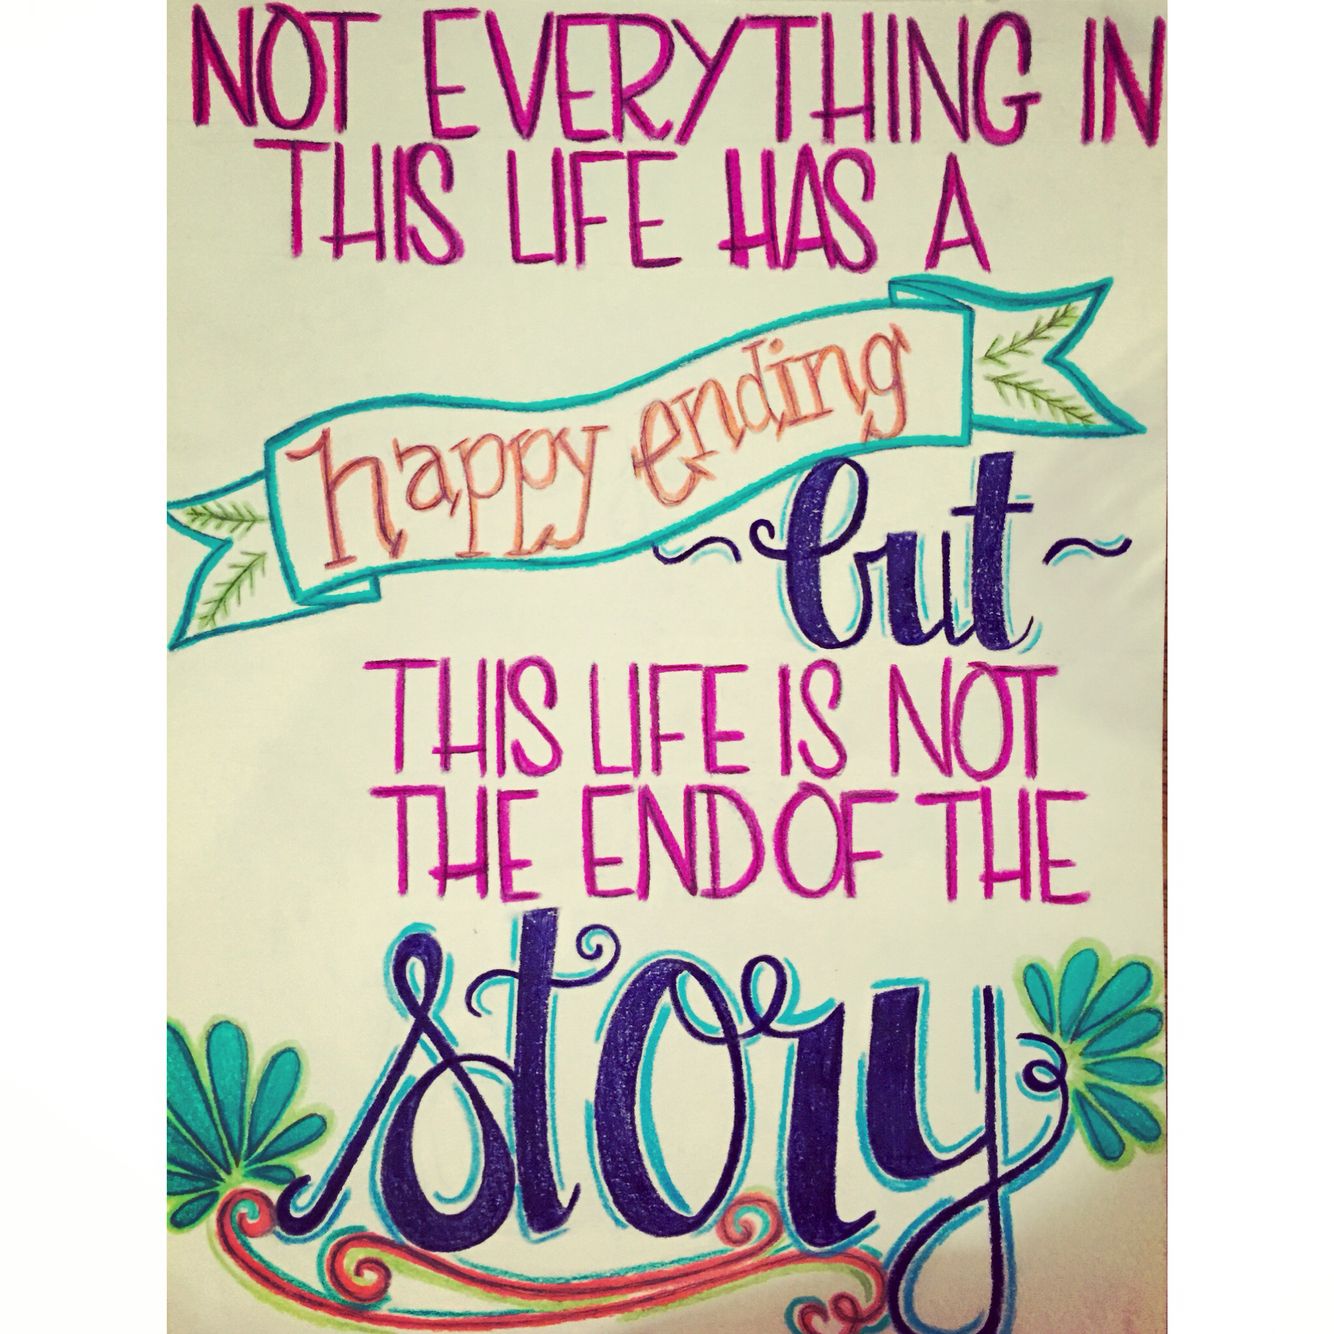 NOT EVERYTHING IN
THIS LIFE HAS A
happy ending
~but~
THIS LIFE IS NOT
THE END OF THE
story